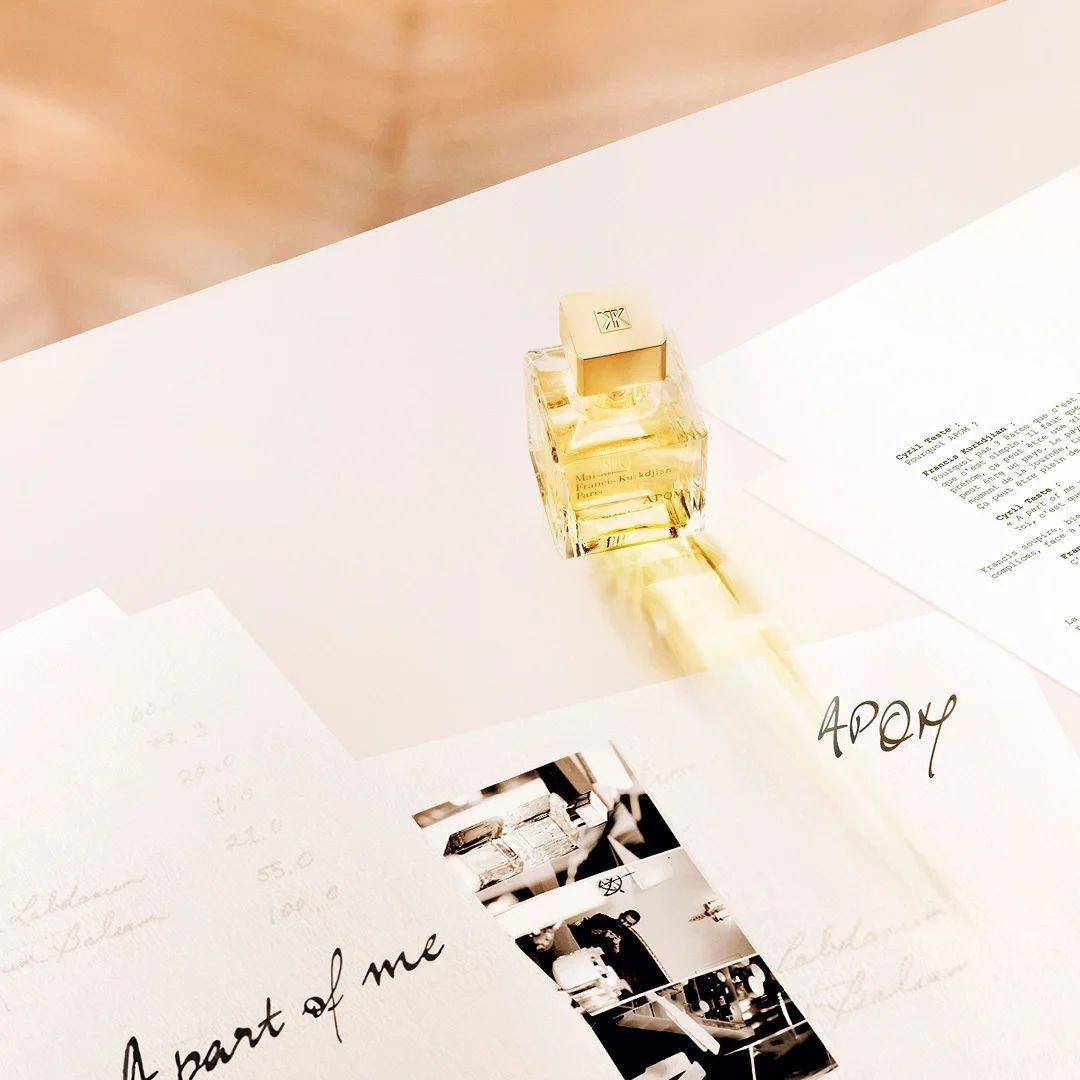 Maison
Francis Kurkdjian
Paris
APOM
Cyril Teste :
Pourquoi APOM ?
Francis Kurkdjian :
Pourquoi pas ? Parce que c'est
que c'est simple. Il faut que
prénom, ça peut être une
peut être un pays. Le
moment de la journée,
Ça peut être plein de
Cyril Teste :
« A part of me
toi, c'est que
Francis soupire,
complices, face à
La
APOM
77.9
20.0
1.0
21.0
55.0
100.0
Labdanum
Balsam
A part of me
Labdanum
Balsam